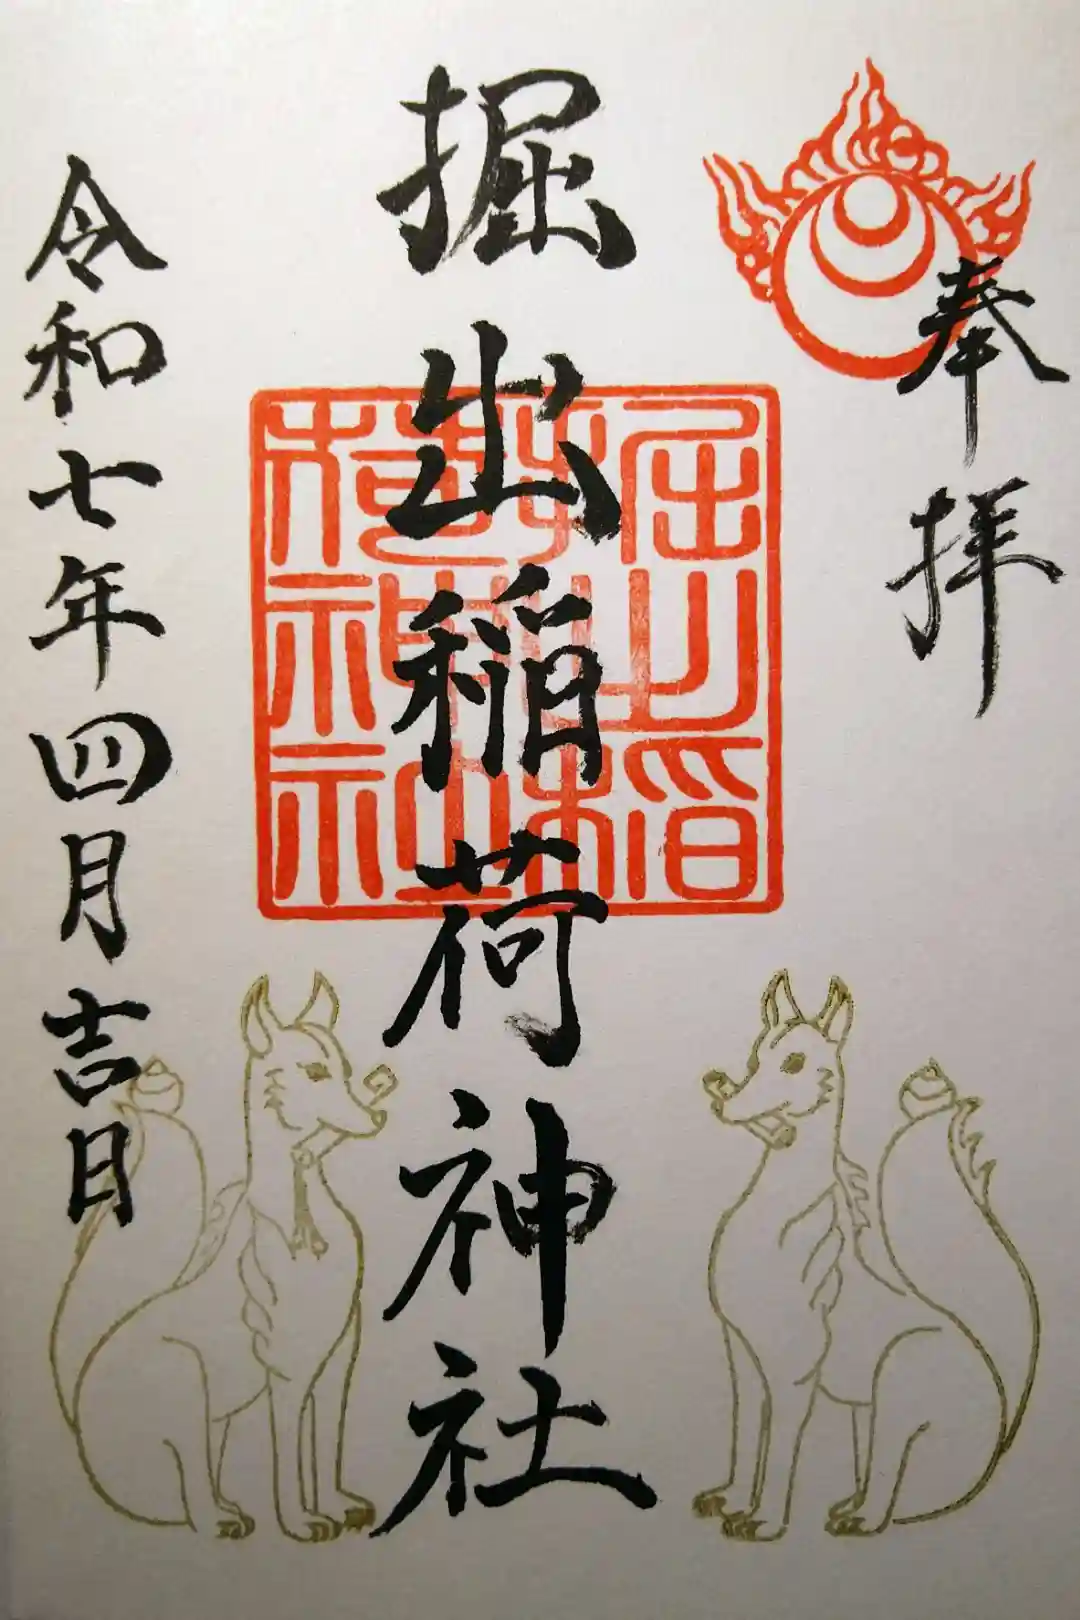 奉拝
掘出稲荷神社
掘出稲荷神社
令和七年四月吉日